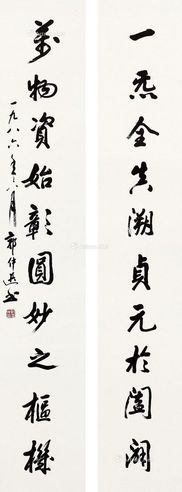 一炁全真溯貞元於闔闢
萬物資始彰圓妙之樞機
一九八六年六月郭仲選书